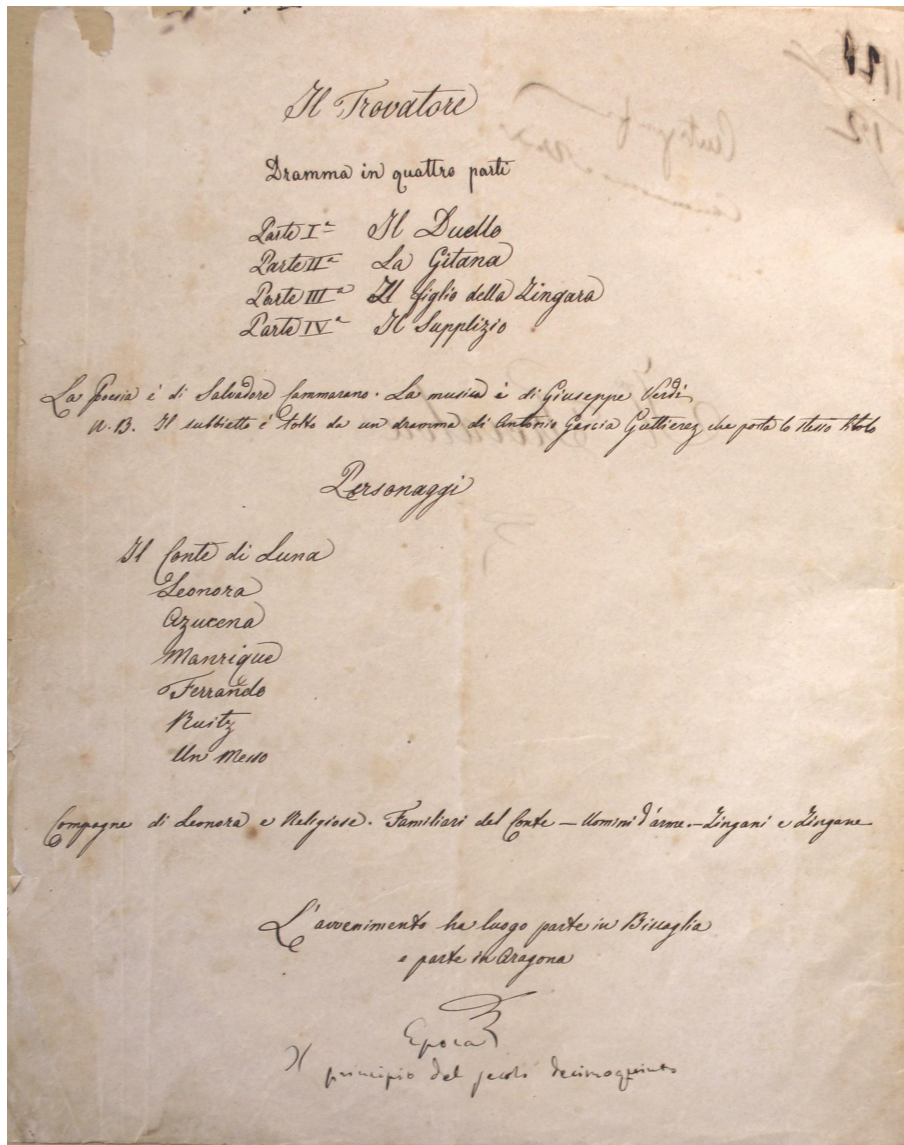 Il Trovatore
Dramma in quattro parti
Parte Iª Il Duello
Parte IIª La Gitana
Parte IIIª Il figlio della Zingara
Parte IVª Il Supplizio
La Poesia è di Salvadore Cammarano. La musica è di Giuseppe Verdi
N.B. Il subbietto è tolto da un dramma di Antonio Garcia Guttierez che porta lo stesso titolo
Personaggi
Il Conte di Luna
Leonora
Azucena
Manrique
Ferrando
Ruitz
Un Messo
Compagne di Leonora e Religiose. Familiari del Conte – Uomini d'arme. – Zingani e Zingane
L'avvenimento ha luogo parte in Biscaglia
e parte in Aragona
Epoca
Il principio del secolo decimoquinto